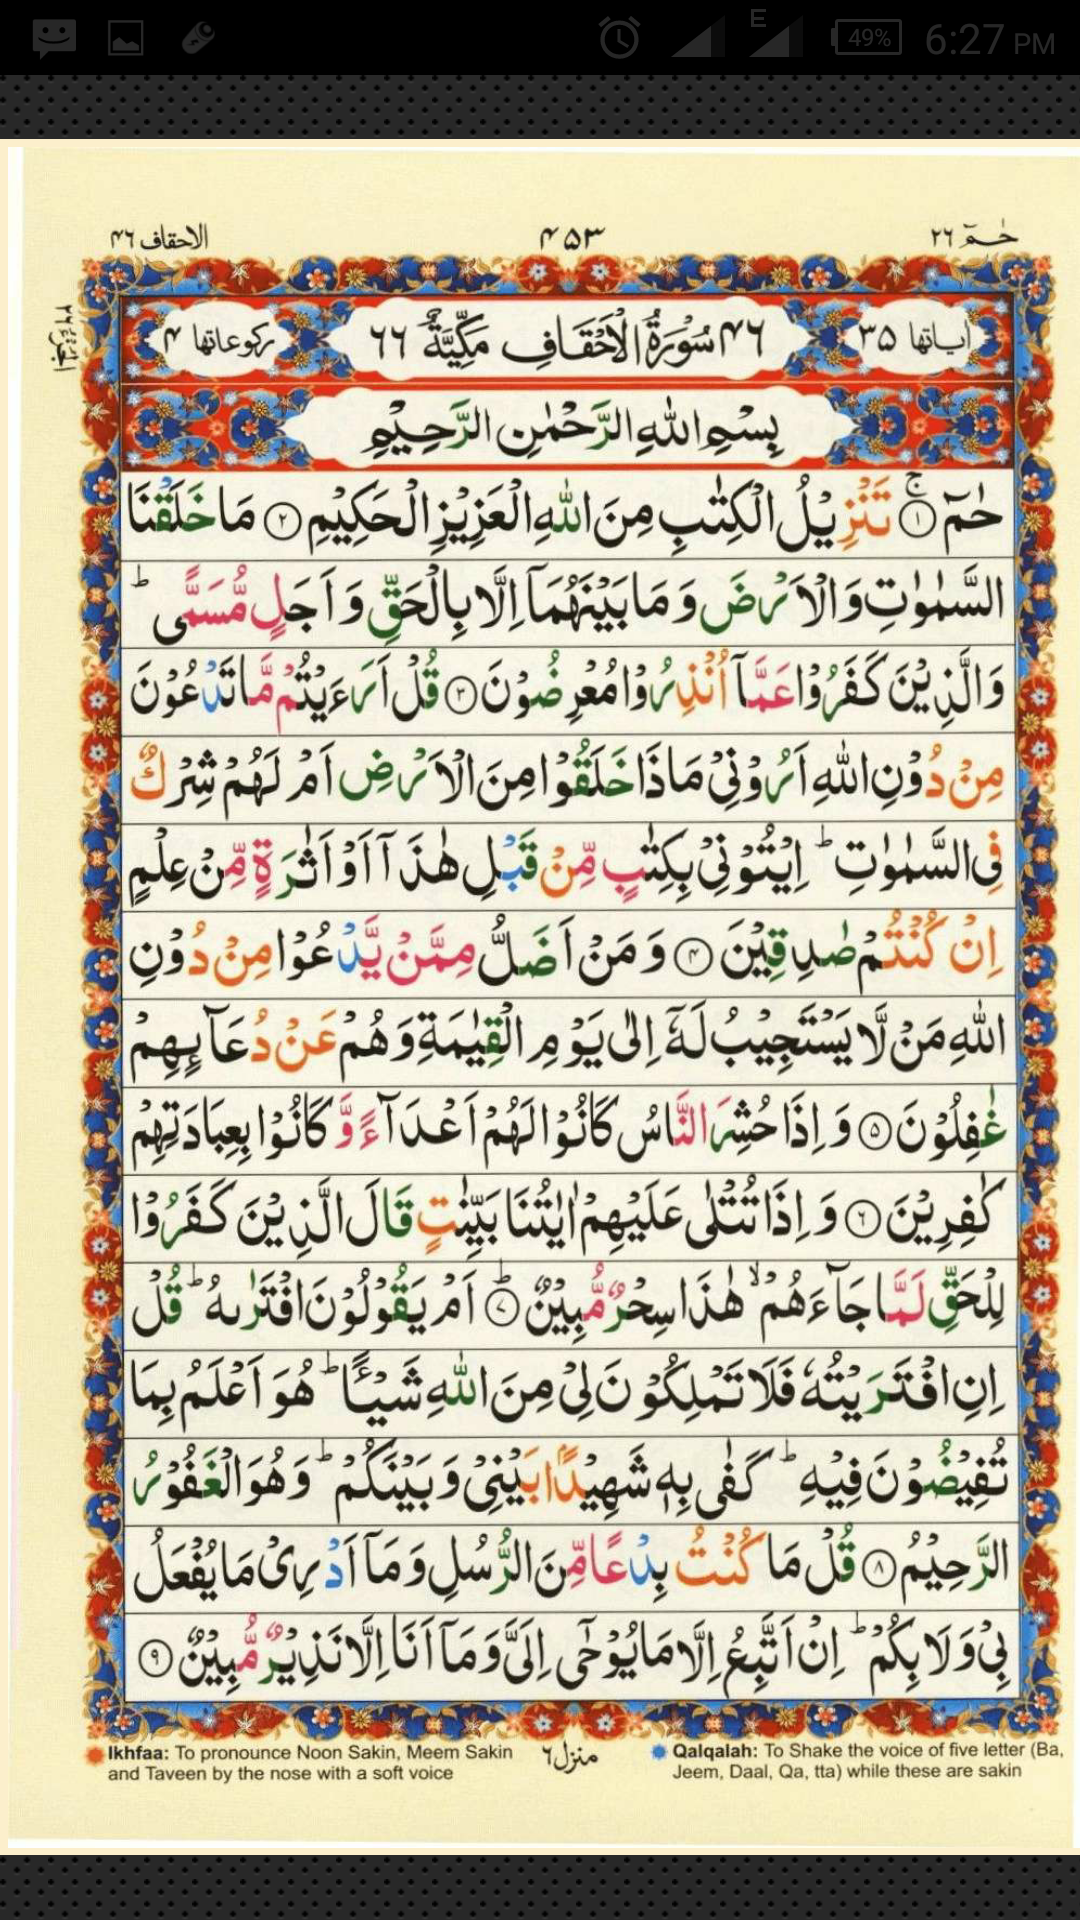 49% 6:27 PM
E
حٰـمٓ ٢٦
٤٥٣
الاحقاف ٤٦
اٰیاتها ٣٥
٤٦ سُوْرَةُ الْاَحْقَافِ مَكِّیَّةٌ ٦٦
ركوعاتها ٤
بِسْمِ اللهِ الرَّحْمٰنِ الرَّحِیْمِ
حٰمٓ ۚ ﴿١﴾ تَنْزِیْلُ الْكِتٰبِ مِنَ اللهِ الْعَزِیْزِ الْحَكِیْمِ ﴿٢﴾ مَا خَلَقْنَا
السَّمٰوٰتِ وَالْاَرْضَ وَمَا بَیْنَهُمَاۤ اِلَّا بِالْحَقِّ وَاَجَلٍ مُّسَمًّی ؕ
وَالَّذِیْنَ كَفَرُوْا عَمَّاۤ اُنْذِرُوْا مُعْرِضُوْنَ ﴿٣﴾ قُلْ اَرَءَیْتُمْ مَّا تَدْعُوْنَ
مِنْ دُوْنِ اللهِ اَرُوْنِیْ مَاذَا خَلَقُوْا مِنَ الْاَرْضِ اَمْ لَهُمْ شِرْكٌ
فِی السَّمٰوٰتِ ؕ اِیْتُوْنِیْ بِكِتٰبٍ مِّنْ قَبْلِ هٰذَاۤ اَوْ اَثٰرَةٍ مِّنْ عِلْمٍ
اِنْ كُنْتُمْ صٰدِقِیْنَ ﴿٤﴾ وَمَنْ اَضَلُّ مِمَّنْ یَّدْعُوْا مِنْ دُوْنِ
اللهِ مَنْ لَّا یَسْتَجِیْبُ لَهٗۤ اِلٰی یَوْمِ الْقِیٰمَةِ وَهُمْ عَنْ دُعَآىِٕهِمْ
غٰفِلُوْنَ ﴿٥﴾ وَاِذَا حُشِرَ النَّاسُ كَانُوْا لَهُمْ اَعْدَآءً وَّ كَانُوْا بِعِبَادَتِهِمْ
كٰفِرِیْنَ ﴿٦﴾ وَاِذَا تُتْلٰی عَلَیْهِمْ اٰیٰتُنَا بَیِّنٰتٍ قَالَ الَّذِیْنَ كَفَرُوْا
لِلْحَقِّ لَمَّا جَآءَهُمْ ۙ هٰذَا سِحْرٌ مُّبِیْنٌ ؕ ﴿٧﴾ اَمْ یَقُوْلُوْنَ افْتَرٰىهُ ؕ قُلْ
اِنِ افْتَرَیْتُهٗ فَلَا تَمْلِكُوْنَ لِیْ مِنَ اللهِ شَیْـًٔا ؕ هُوَ اَعْلَمُ بِمَا
تُفِیْضُوْنَ فِیْهِ ؕ كَفٰی بِهٖ شَهِیْدًۢا بَیْنِیْ وَبَیْنَكُمْ ؕ وَهُوَ الْغَفُوْرُ
الرَّحِیْمُ ﴿٨﴾ قُلْ مَا كُنْتُ بِدْعًا مِّنَ الرُّسُلِ وَمَاۤ اَدْرِیْ مَا یُفْعَلُ
بِیْ وَلَا بِكُمْ ؕ اِنْ اَتَّبِعُ اِلَّا مَا یُوْحٰۤی اِلَیَّ وَمَاۤ اَنَا اِلَّا نَذِیْرٌ مُّبِیْنٌ ﴿٩﴾
Ikhfaa: To pronounce Noon Sakin, Meem Sakin
and Taveen by the nose with a soft voice
منزل ٦
Qalqalah: To Shake the voice of five letter (Ba,
Jeem, Daal, Qa, tta) while these are sakin